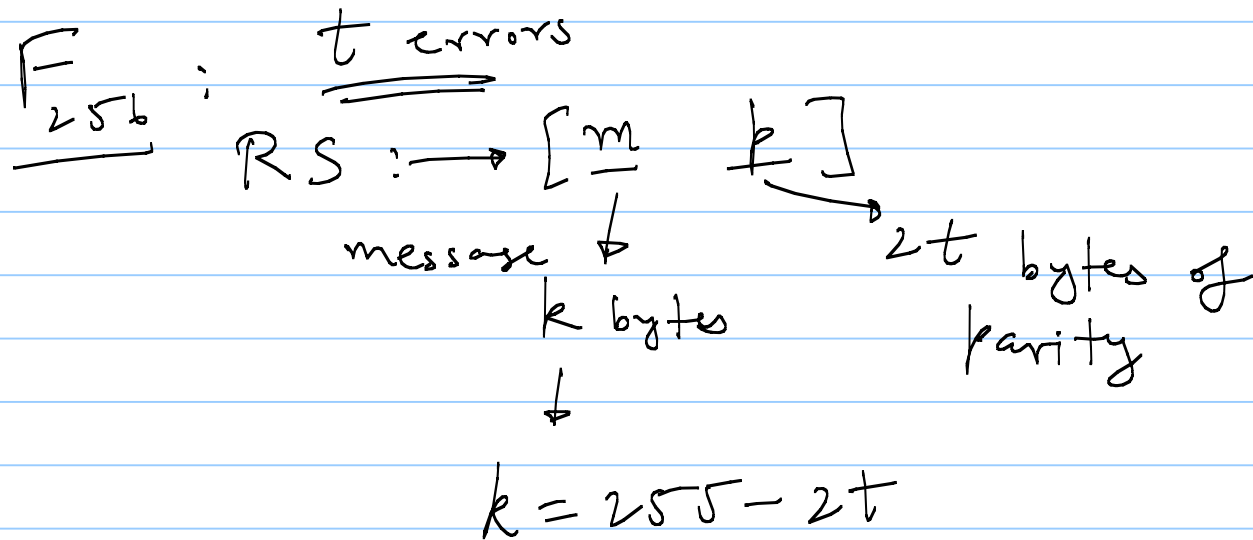 F₂₅₆ : t errors
RS : → [ m p ]
message k bytes
2t bytes of parity
k = 255 - 2t